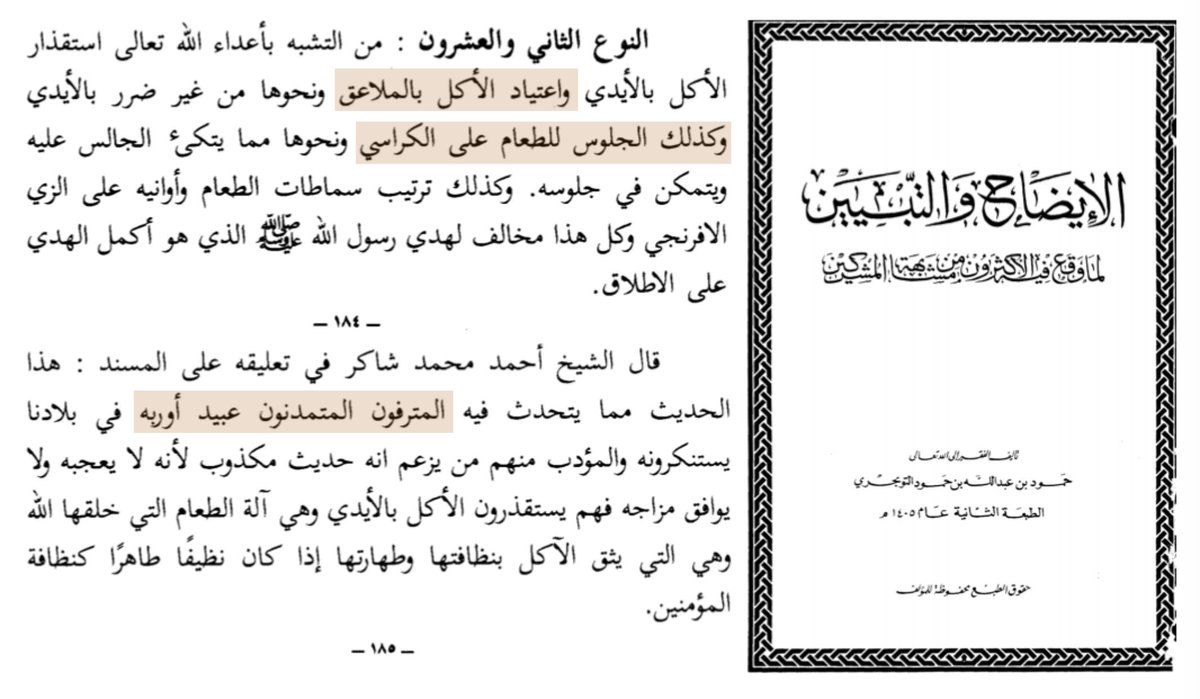 النوع الثاني والعشرون : من التشبه بأعداء الله تعالى استقذار
الأكل بالأيدي واعتياد الأكل بالملاعق ونحوها من غير ضرر بالأيدي
وكذلك الجلوس للطعام على الكراسي ونحوها مما يتكىء الجالس عليه
ويتمكن في جلوسه. وكذلك ترتيب سماطات الطعام وأوانيه على الزي
الافرنجي وكل هذا مخالف لهدي رسول الله ﷺ الذي هو أكمل الهدي
على الاطلاق.
— ١٨٤ —
قال الشيخ أحمد محمد شاكر في تعليقه على المسند : هذا
الحديث مما يتحدث فيه المترفون المتمدنون عبيد أوربه في بلادنا
يستنكرونه والمؤدب منهم من يزعم انه حديث مكذوب لأنه لا يعجبه ولا
يوافق مزاجه فهم يستقذرون الأكل بالأيدي وهي آلة الطعام التي خلقها الله
وهي التي يثق الآكل بنظافتها وطهارتها إذا كان نظيفًا طاهرًا كنظافة
المؤمنين.
— ١٨٥ —
الإيضاح والتبيين
لما وقع فيه الأكثرون من مشابهة المشركين
تأليف الفقير إلى الله تعالى
حمود بن عبدالله بن حمود التويجري
الطبعة الثانية عام ١٤٠٥ م
حقوق الطبع محفوظة للمؤلف